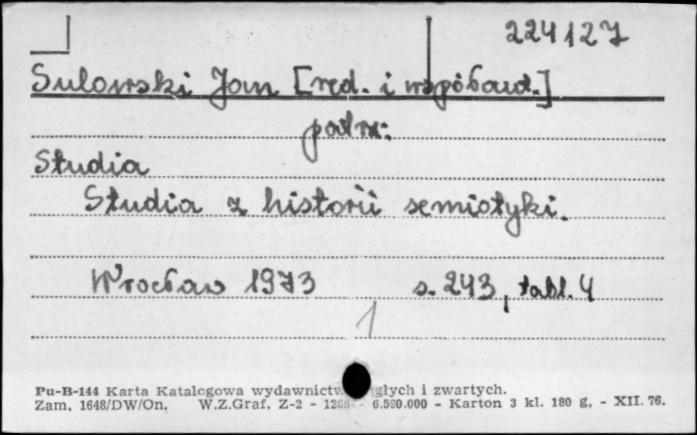 224127
Sulowski Jan [red. i współaut.]
patrz:
Studia
Studia z historii semiotyki.
Wrocław 1973 s. 243, tabl. 4
1
Pu-B-144 Karta Katalogowa wydawnictw głych i zwartych.
Zam. 1648/DW/On. W.Z.Graf. Z-2 - 6.500.000 - Karton 3 kl. 180 g. - XII. 76.